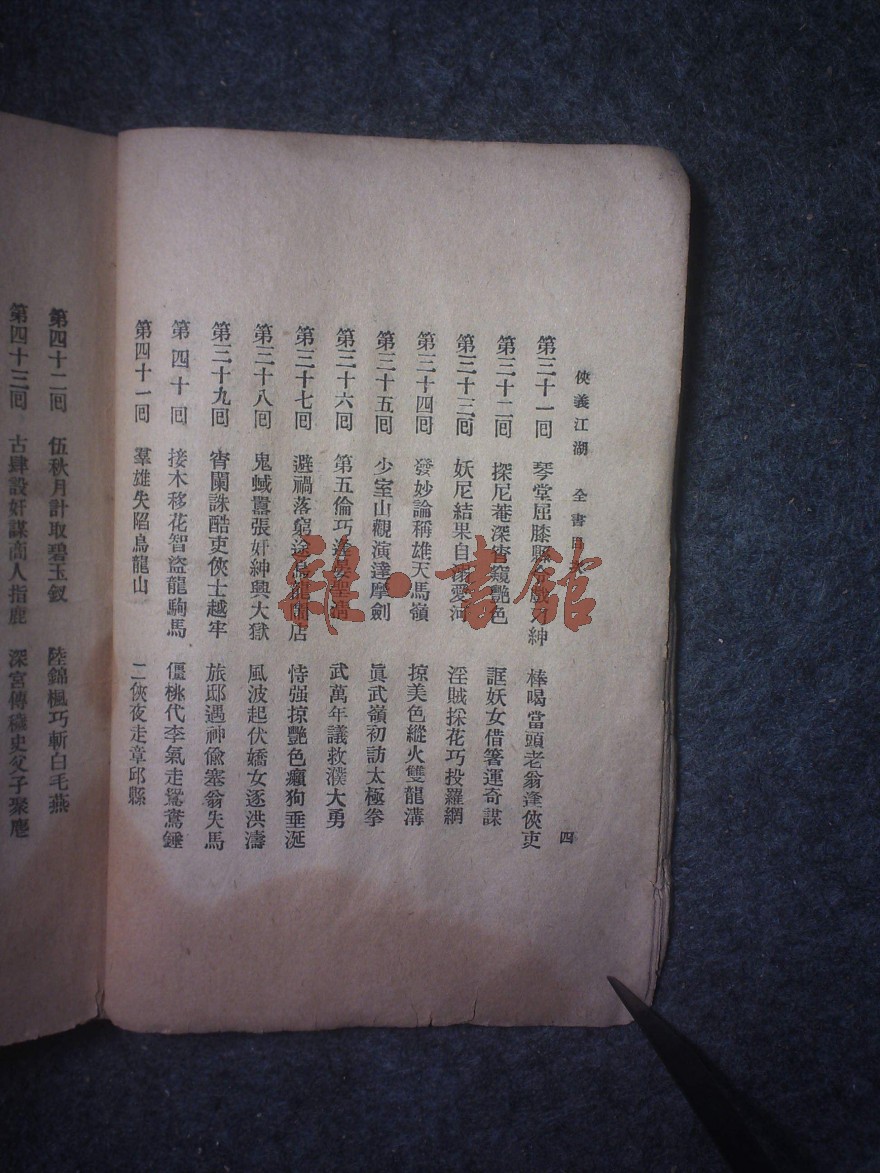 俠義江湖 全書
四
第三十一回 琴堂屈膝縣 紳 棒喝當頭老翁逢俠吏
第三十二回 探尼菴深宵窺艷色 誆妖女借箸運奇謀
第三十三回 妖尼結果自 愛河 淫賊採花巧投羅網
第三十四回 發妙論稱雄天馬嶺 掠美色縱火雙龍溝
第三十五回 少室山觀演達摩劍 眞武嶺初訪太極拳
第三十六回 第五倫巧 武萬年議救濮大勇
第三十七回 避禍落窮途 店 恃强掠艷色癩狗垂涎
第三十八回 鬼蜮囂張奸紳興大獄 風波起伏嬌女逐洪濤
第三十九回 宵闌誅酷吏俠士越牢 旅邸遇神偸塞翁失馬
第四十回 接木移花智盜龍駒馬 僵桃代李氣走鴛鴦錘
第四十一回 羣雄失陷烏龍山 二俠夜走章邱縣
第四十二回 伍秋月計取碧玉釵 陸錦楓巧斬白毛燕
第四十三回 古肆設奸謀商人指鹿 深宮傳穢史父子聚麀
雜·書館